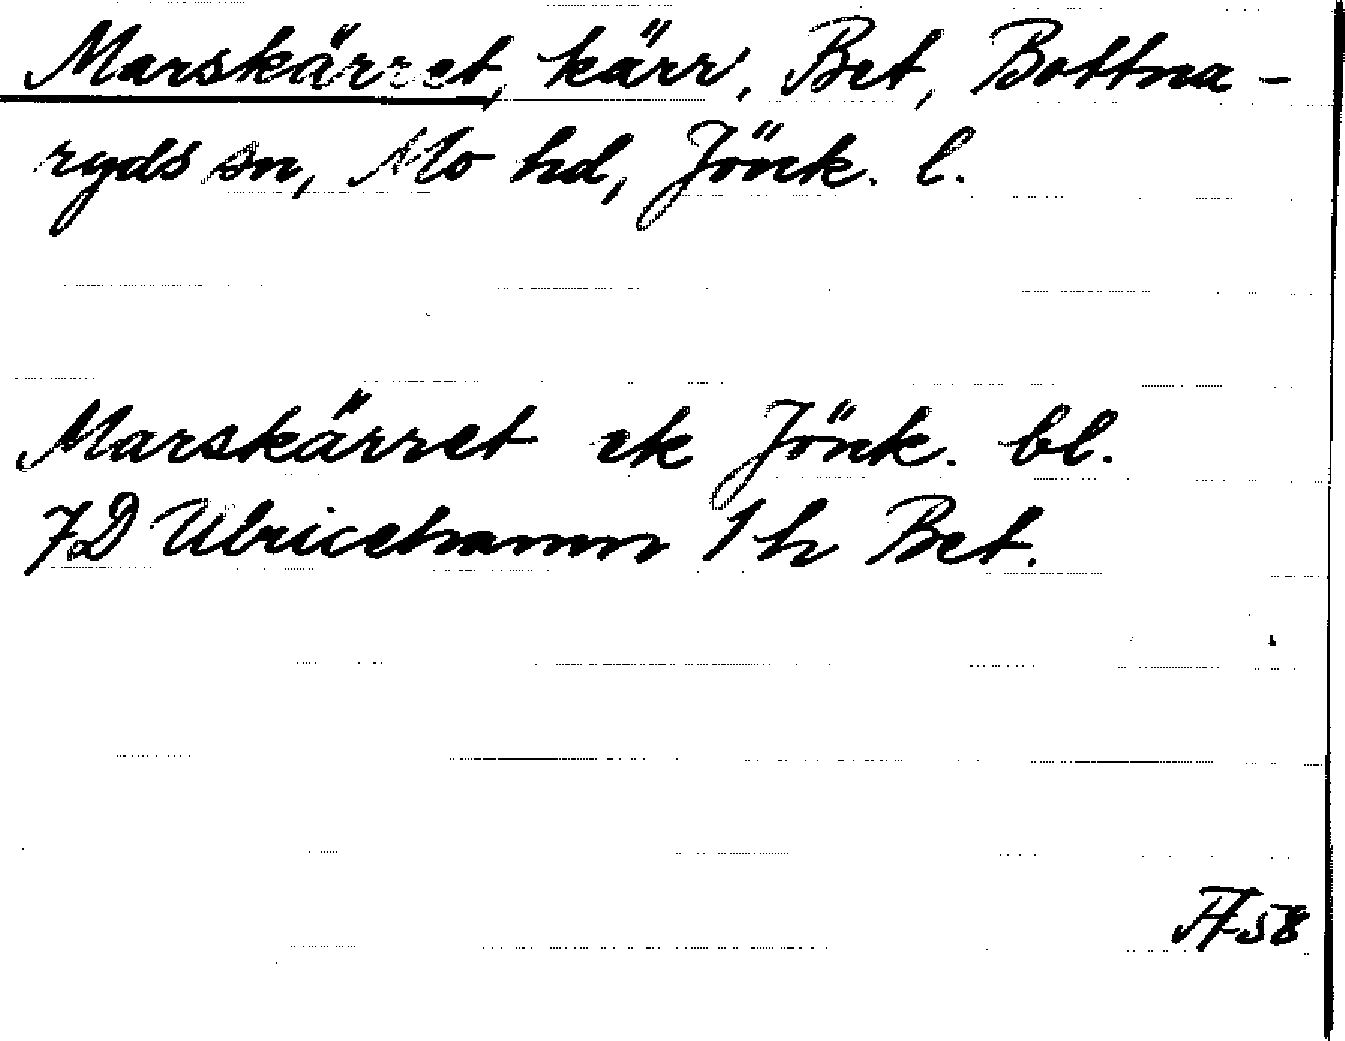 Marskärret, kärr, Bet, Bottna-
ryds sn, Mo hd, Jönk. l.
Marskärret ek Jönk. bl.
7D Ulricehamn 1h Bet.
58